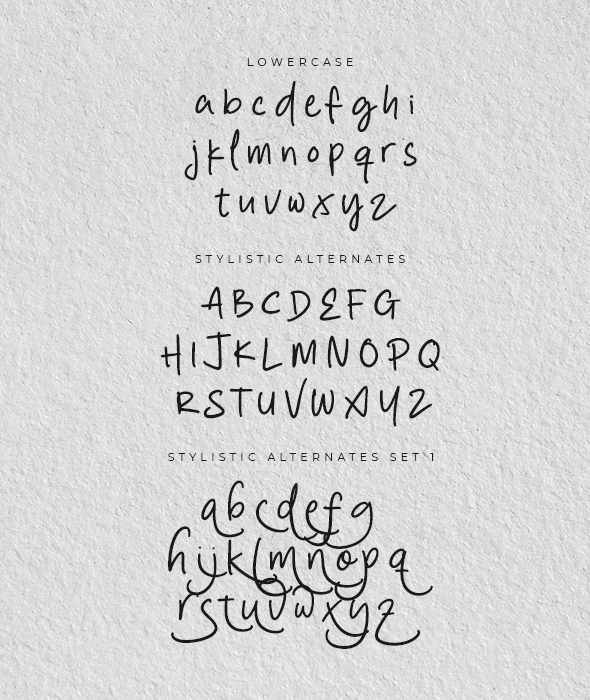 LOWERCASE
a b c d e f g h i
j k l m n o p q r s
t u v w x y z
STYLISTIC ALTERNATES
A B C D E F G
H I J K L M N O P Q
R S T U V W X Y Z
STYLISTIC ALTERNATES SET 1
a b c d e f g
h i j k l m n o p q
r s t u v w x y z